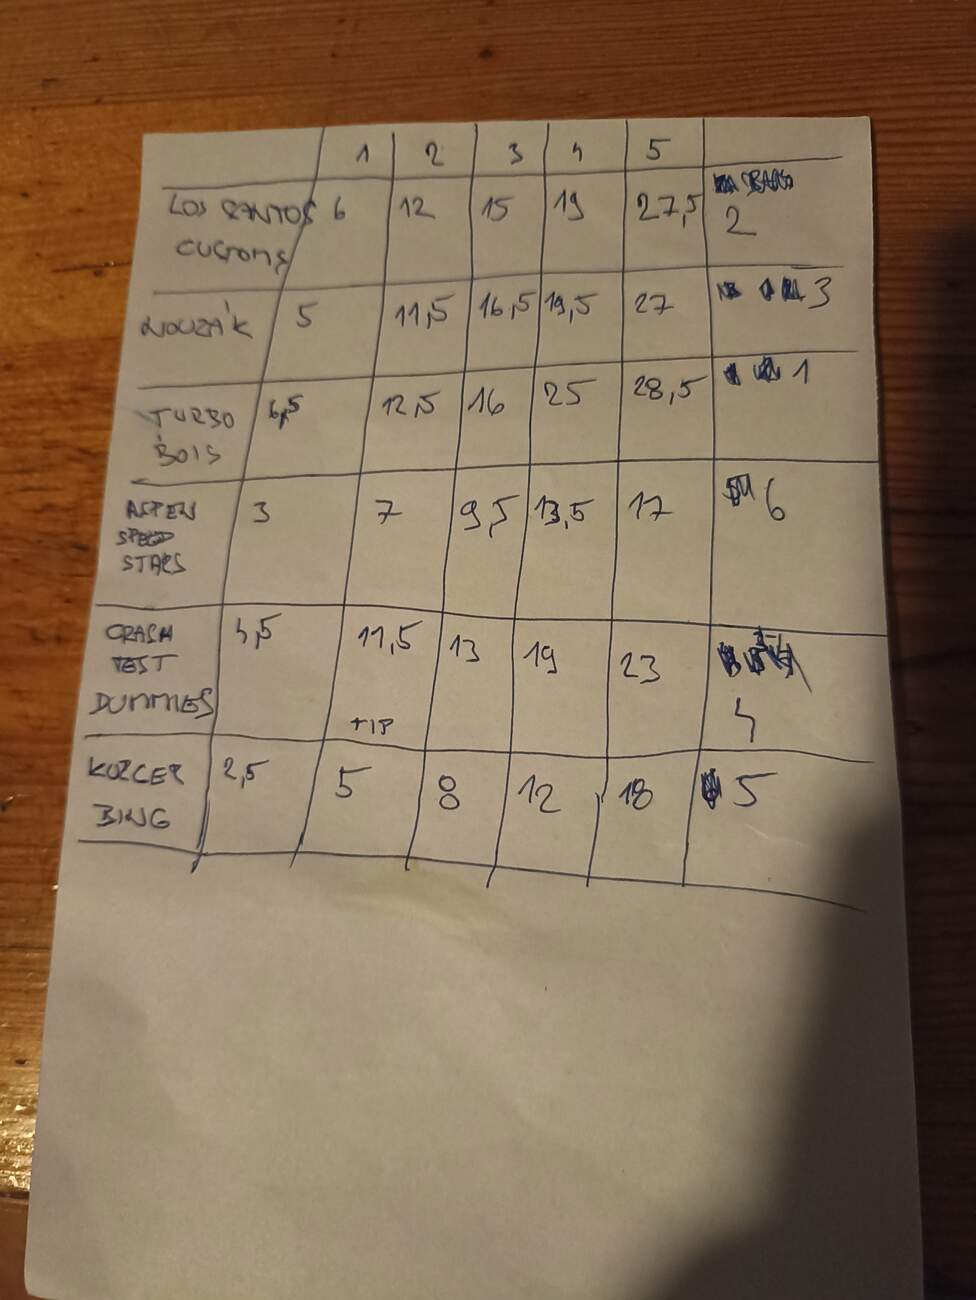 1 2 3 4 5
LOS SANTOS 6 12 15 19 27,5 2
CUSTOMS
NOUZÁK 5 11,5 16,5 19,5 27 3
TURBO 6,5 12,5 16 25 28,5 1
BOIS
ASPEN 3 7 9,5 13,5 17 6
SPEED
STARS
CRASH 4,5 11,5 13 19 23
TEST
DUMMIES +1P 4
2,5 5 8 12 18 5
BING